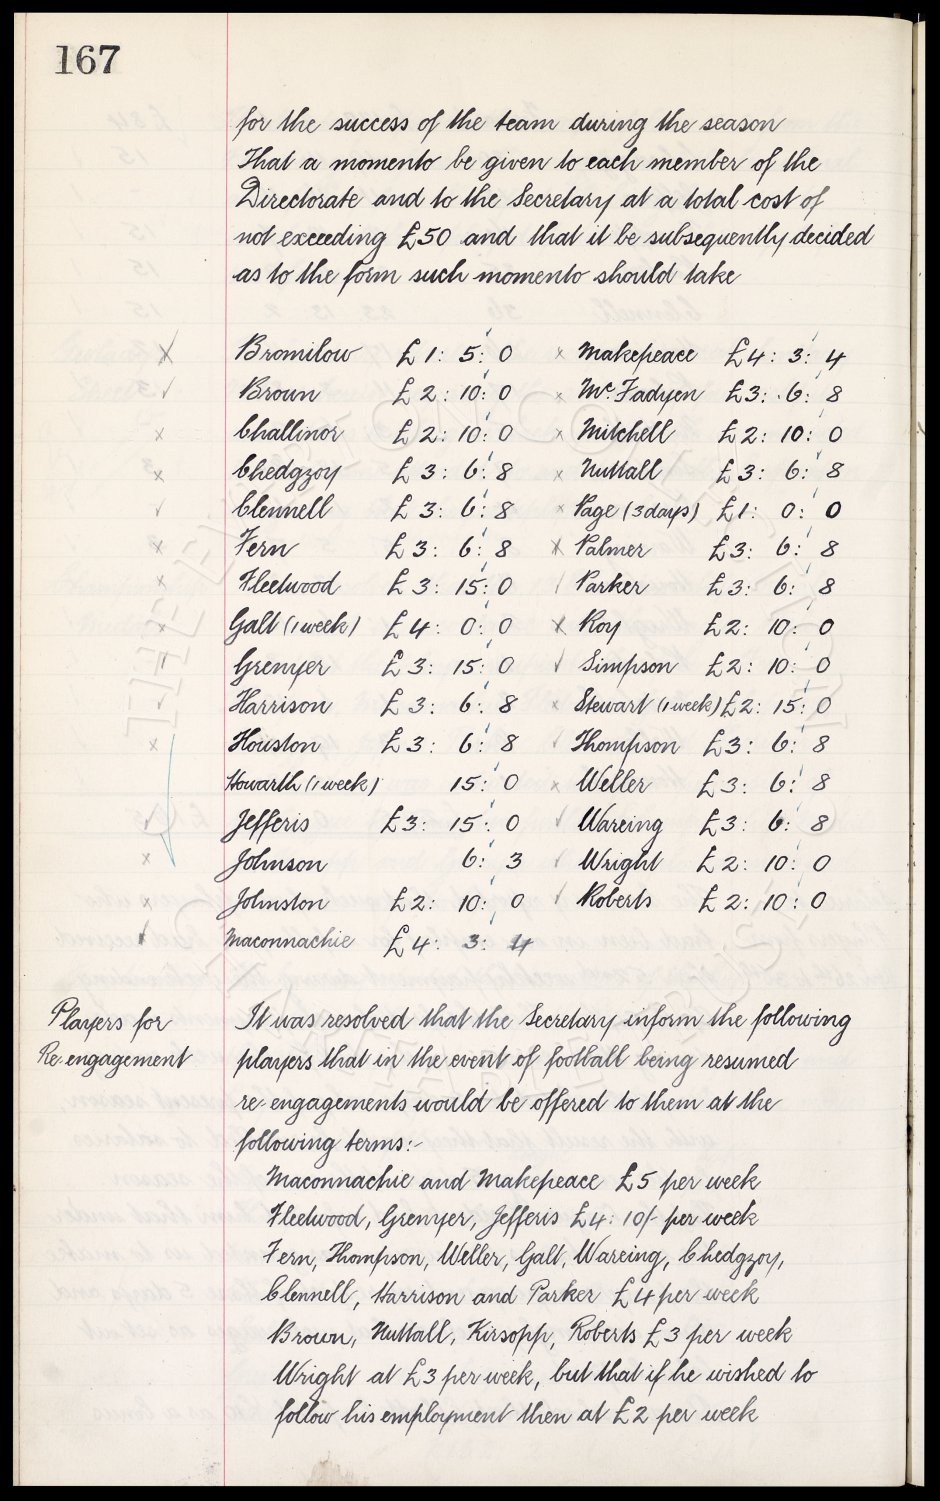 167
for the success of the team during the season
That a momento be given to each member of the
Directorate and to the Secretary at a total cost of
not exceeding £50 and that it be subsequently decided
as to the form such momento should take
Bromilow £1: 5: 0 x Makepeace £4: 3: 4
Brown £2: 10: 0 x McFadyen £3: 6: 8
Challinor £2: 10: 0 x Mitchell £2: 10: 0
Chedgzoy £3: 6: 8 x Nuttall £3: 6: 8
Clennell £3: 6: 8 x Page (3 days) £1: 0: 0
Fern £3: 6: 8 x Palmer £3: 6: 8
Fleetwood £3: 15: 0 Parker £3: 6: 8
Galt (1 week) £4: 0: 0 x Roy £2: 10: 0
Grenyer £3: 15: 0 Simpson £2: 10: 0
Harrison £3: 6: 8 x Stewart (1 week) £2: 15: 0
Houston £3: 6: 8 Thompson £3: 6: 8
Howarth (1 week) 15: 0 x Weller £3: 6: 8
Jefferis £3: 15: 0 Wareing £3: 6: 8
Johnson 6: 3 Wright £2: 10: 0
Johnston £2: 10: 0 Roberts £2: 10: 0
Maconnachie £4: 3: 4
Players for
Re-engagement
It was resolved that the Secretary inform the following
players that in the event of football being resumed
re-engagements would be offered to them at the
following terms:-
Maconnachie and Makepeace £5 per week
Fleetwood, Grenyer, Jefferis £4: 10/- per week
Fern, Thompson, Weller, Galt, Wareing, Chedgzoy,
Clennell, Harrison and Parker £4 per week
Brown, Nuttall, Kirsopp, Roberts £3 per week
Wright at £3 per week, but that if he wished to
follow his employment then at £2 per week